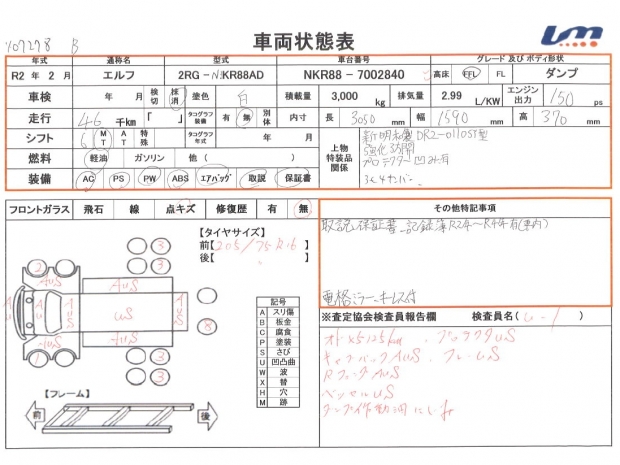 Y07278 B
車両状態表
年式 通称名 型式 車台番号 グレード 及び ボディ形状
R2 年 2 月 エルフ 2RG-NKR88AD NKR88-7002840 高床 FFL FL ダンプ
車検 年 月 検切 抹消 塗色 白 積載量 3,000 kg 排気量 2.99 L/KW エンジン出力 150 ps
走行 46 千km 「 」 タコグラフ装備 有 無 別体 内寸 長 3050 mm 幅 1590 mm 高 370 mm
シフト 6 MT AT 特殊 タコグラフ年式 年 月 上物特装品関係
新明和製 DR2-0110ST型
強化3方開
プロテクター凹み有
燃料 軽油 ガソリン 他 ( )
装備 AC PS PW ABS エアバッグ 取説 保証書
フロントガラス 飛石 線 点キズ 修復歴 有 無
その他特記事項
取説、保証書、記録簿R24~R44有(車内)
電格ミラー キーレス付
【タイヤサイズ】
前【205/75R16】
後【 〃 】
記号
A スリ傷
B 板金
C 腐食
P 塗装
S さび
U 凹凸曲
W 波
X 替
H 穴
M 跡
AUS
US
【フレーム】
前 後
※査定協会検査員報告欄 検査員名( )
キャブバックAUS フレームUS
RフェンダAUS
ベッセルUS